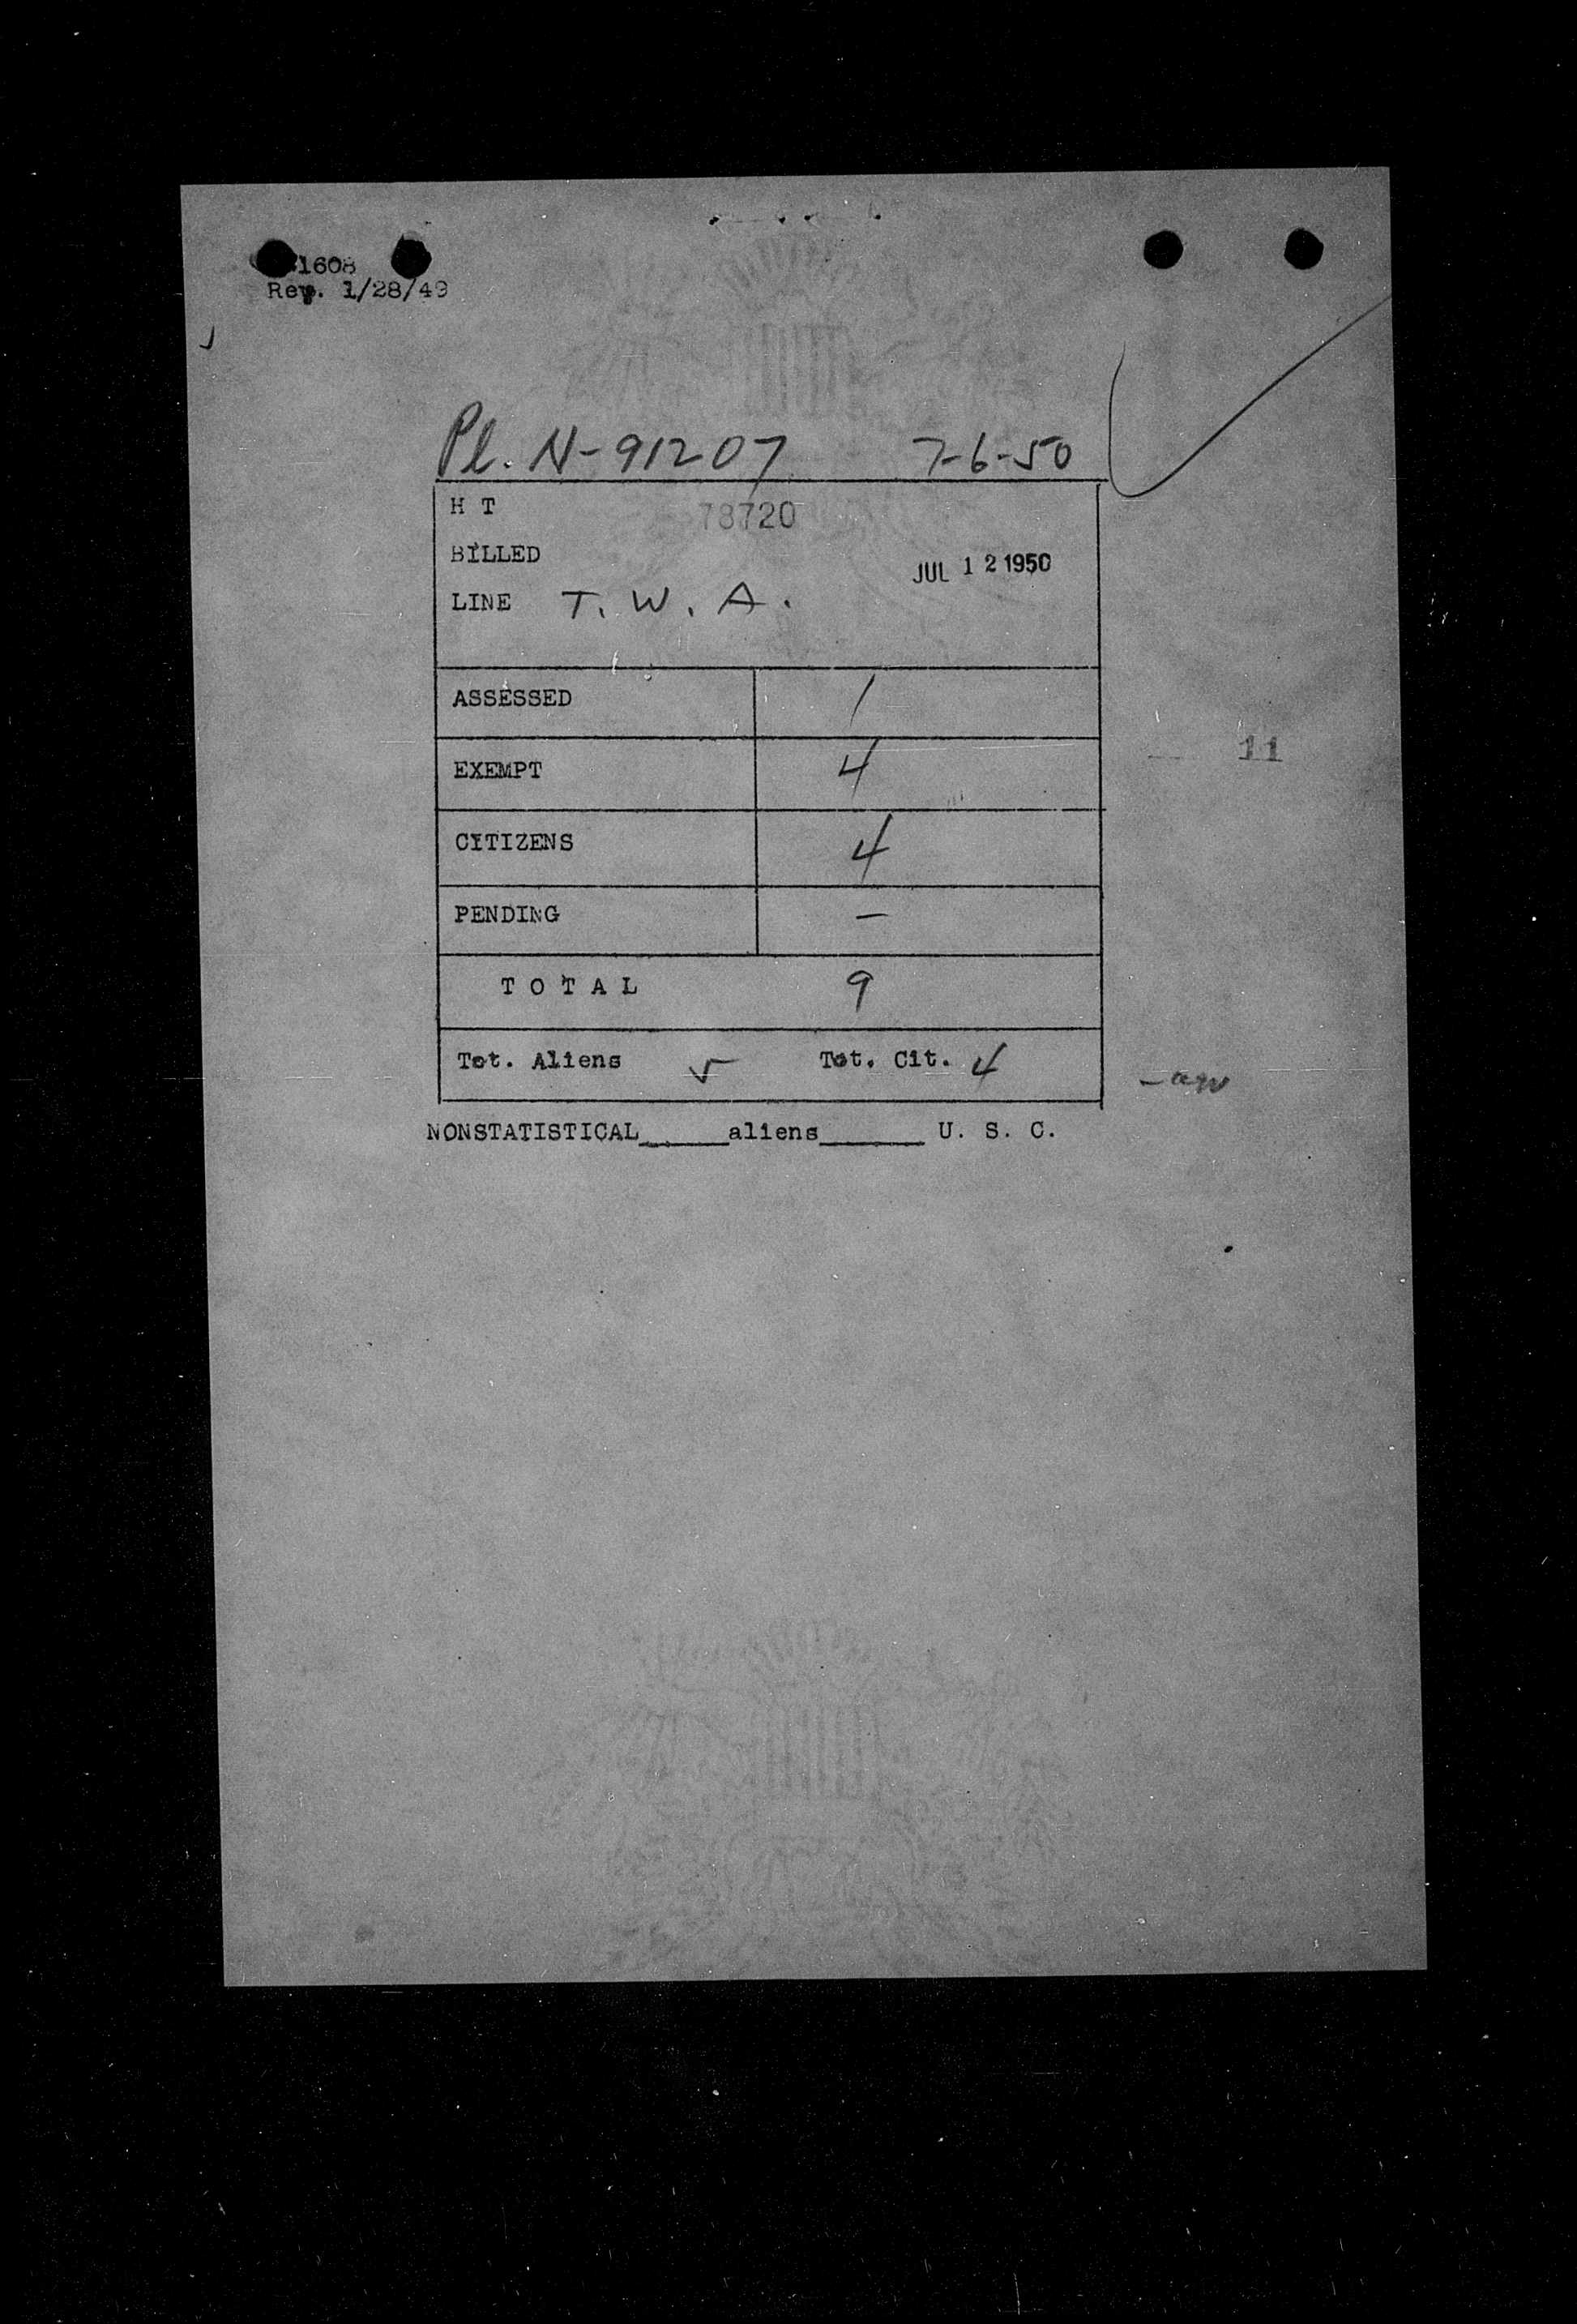 1608
Rev. 1/28/49
Pl. N-91207 7-6-50
H T 78720
BILLED
JUL 12 1950
LINE T. W. A.
ASSESSED 1
EXEMPT 4
11
CITIZENS 4
PENDING —
TOTAL 9
Tot. Aliens 5 Tot. Cit. 4
NONSTATISTICAL______aliens_______ U. S. C.